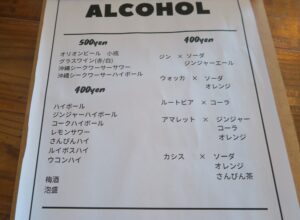 ALCOHOL
500yen
オリオンビール 小瓶
グラスワイン(赤/白)
沖縄シークワーサーサワー
沖縄シークワーサーハイボール
400yen
ハイボール
ジンジャーハイボール
コークハイボール
レモンサワー
さんぴんハイ
ルイボスハイ
ウコンハイ
梅酒
泡盛
400yen
ジン × ソーダ
ジンジャーエール
ウォッカ × ソーダ
オレンジ
ルートビア × コーラ
アマレット × ジンジャー
コーラ
オレンジ
カシス × ソーダ
オレンジ
さんぴん茶